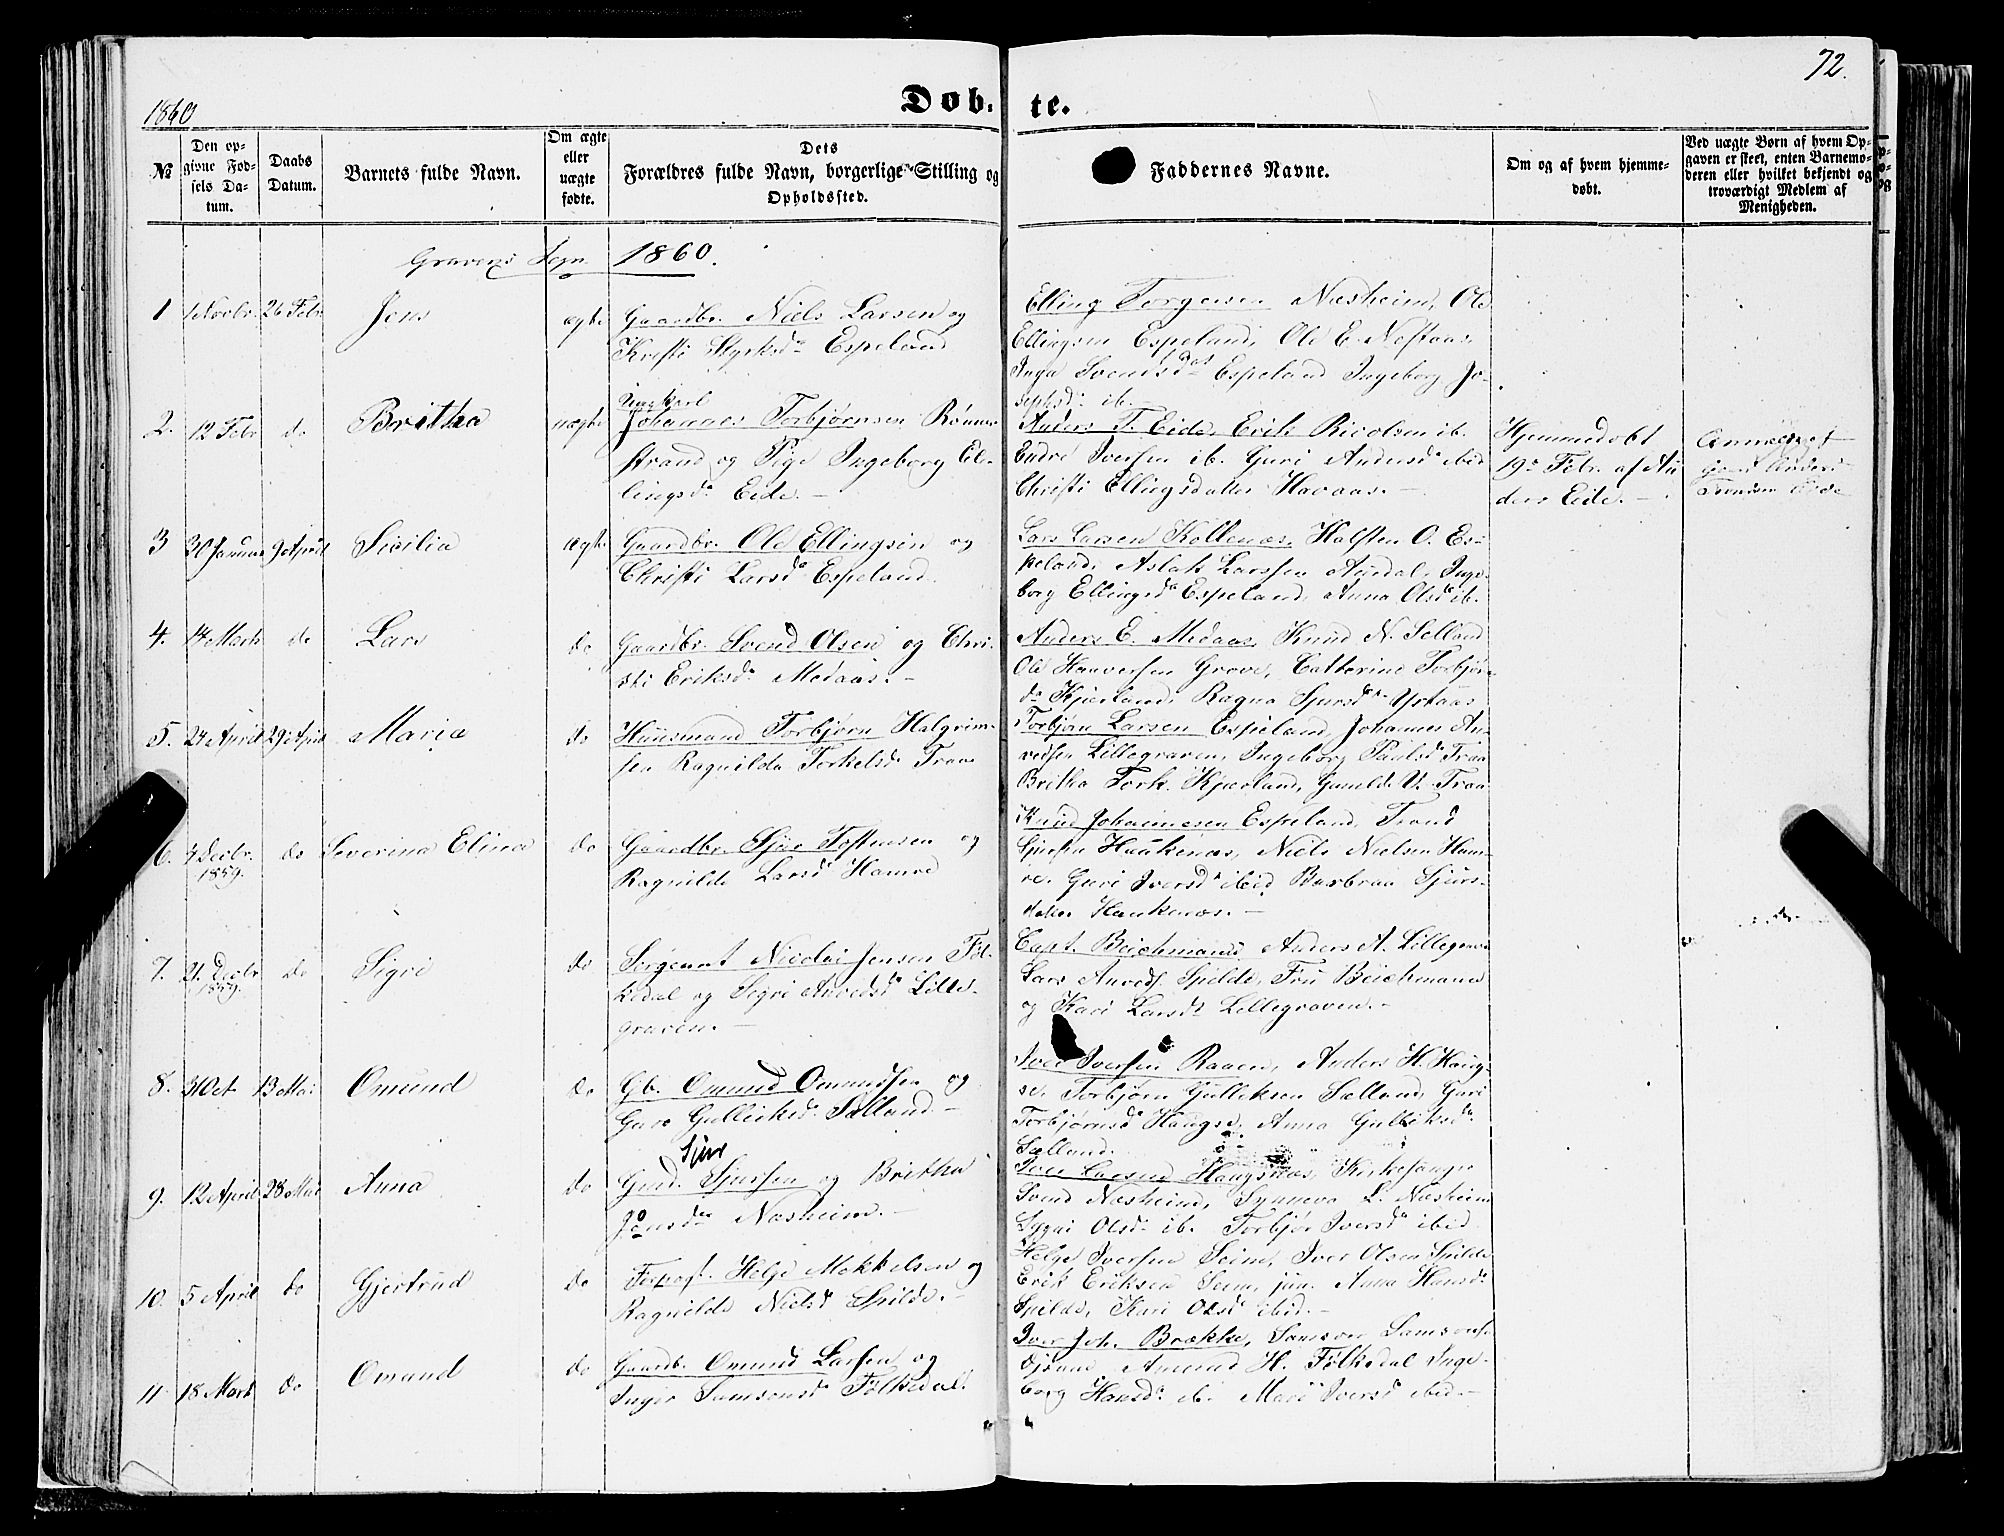 1860
72.
Døb. te.
№
Den op-
givne Fød-
sels Da-
tum.
Daabs
Datum.
Barnets fulde Navn.
Om ægte
eller
uægte
fødte.
Dets
Forældres fulde Navn, borgerlige Stilling og
Opholdssted.
Faddernes Navne.
Om og af hvem hjemme-
døbt.
Ved uægte Børn af hvem Op-
gaven er skeet, enten Barnemo-
deren eller hvilket bekjendt og
troværdigt Medlem af
Menigheden.
Gravens Sogn 1860.
1 26 Febr Jens ægte
Gaardbr. Niels Larsen og
Kristi Styrksd. Espeland
Elling Torgersen Næsheim, Ole
Ellingsen Espeland, Ole E.
Inga Svendsd. Espeland Ingeborg Jo-
sephsd. ib.
2. 12 Febr do Britha uægte
Ungkarl
Johannes Torbjørnsen Rønne-
strand og Pige Ingeborg El-
lingsd. Eide. —
Anders T. Eide, Erik ib.
Endre Iversen ib. Guri Andersd. ibid
Christi Ellingsdatter Havaas. —
Hjemmedøbt
19de Febr. af An
ders Eide. —
3 30 Januar 9 April Sicilia ægte
Gaardbr. Ole Ellingsen og
Christi Larsd. Espeland.
Lars Larsen Kollenæs, Halsten O. Es-
peland, Aslak Larssen Aurdal, Inge-
borg Ellingsd. Espeland, Anna Olsd. ib.
4. 14 Marts do Lars do
Gaardbr. Svend Olsen og Chri-
sti Eriksd. Medaas. —
Anders E. Medaas, Knud N. Selland
Ole Haaversen Grove, Catherine Torbjørn
d. Kjærland, Ragna Sjursd.
5. 24 April 29 April Maria do
Huusmand Torbjørn Halgrim-
sen Ragnilda Torkelsd. Traa
Torbjørn Larsen Espeland, Johannes An-
vedsen Lillegraven, Ingeborg Paulsd. Traa
Britha Tork. Kjærland, Gunild V. Traa
6. 4 Decbr. do Severina Elina do
1859.
Gaardbr. Sjur Tostensen og
Ragnilde Larsd. Hamre
Knud Johannesen Espeland, Trond
Sjursen Haukenæs, Niels Nielsen Ham-
re. Guri Iversd. ibid Barbraa Sjurs-
datter Haukenæs. —
7. 21 Decbr do Sigri do
1859.
Sergeant Nicolai Jensen Fol-
kedal og Sigri Anvedsd. Lille-
graven. —
Capt. Beichmann, Anders A. Lillegraven
Lars Anveds. Spilde, Fru Beichmann
og Kari Larsd. Lillegraven. —
8. 31 Oct. 13 Mai Omund do
Gb. Omund Omundsen og
Guro Gulleiksd. Sælland —
Iver Iversen Raaen, Anders H. Haug-
se. Torbjørn Gulleksen Sælland, Guri
Torbjørnsd. Haugse, Anna Gulliksd.
Sælland.
9. 12 April 28 Mai Anna do
Sjur
Gmd. Sjursen og Britha
Jonsd. Næsheim. —
Iver Larsen Haugsnæs, Kirkesanger
Svend Næsheim, Synneva L. Næsheim
Olsd. ib. Torbjør Iversd. ibid
10. 5 April do Gjertrud do
Helge Mekkelsen og
Ragnilde Nielsd. Spilde. —
Helge Iversen Seim, Iver Olsen Spilde
Erik Eriksen Seim jun. Anna Hansd.
Spilde, Kari Olsd. ibid. —
11 18 Marts do Omund do
Gaardb. Omund Larsen og
Inger Samsonsd. Folkedal.
Iver Joh. Brække, Samson Samsons.
Djønne, Amund H. Folkedal Inge-
borg Hansd. ib. Mari Iversd. ibid. —